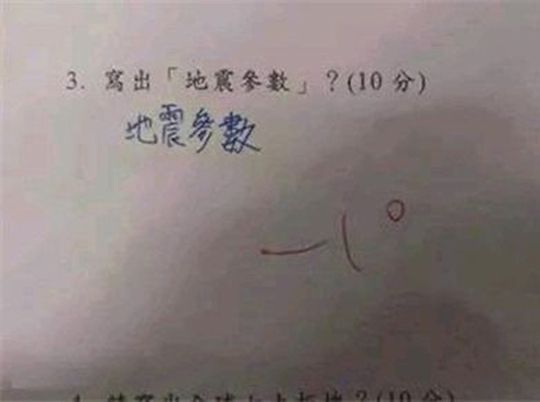 3. 寫出「地震參數」?(10 分)
地震參數
-10